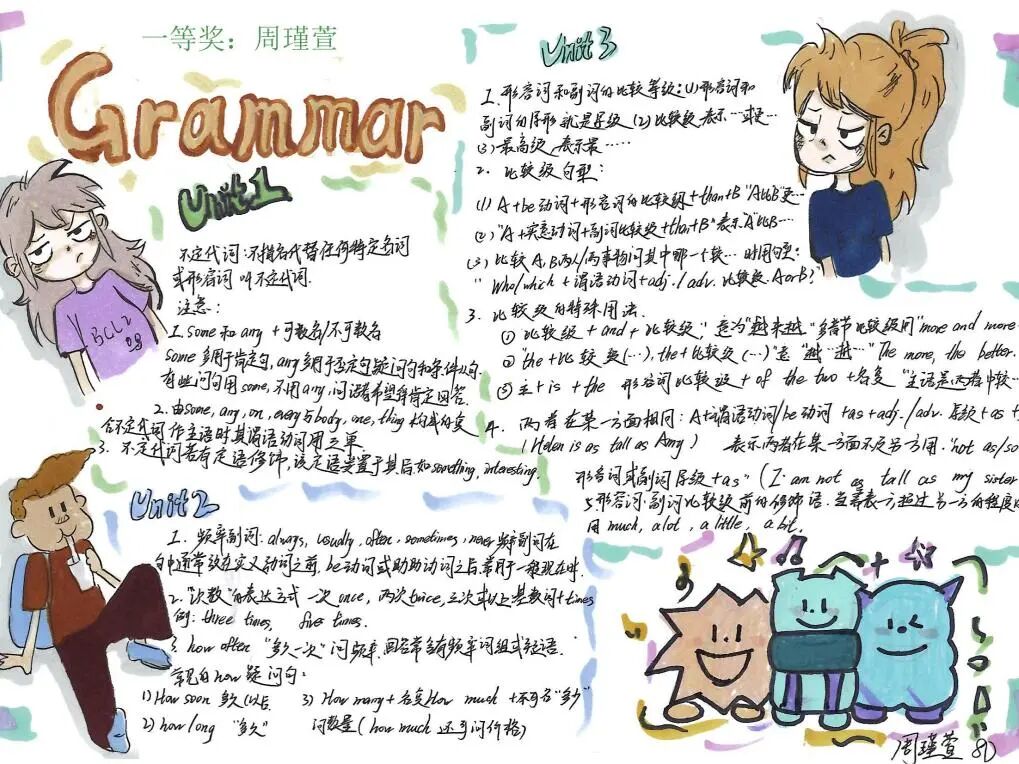 一等奖：周瑾萱
Grammar
Unit 1
不定代词：不指名代替任何特定名词
或形容词 叫不定代词.
注意：
1. some 和 any + 可数名/不可数名
some 多用于肯定句, any 多用于否定句疑问句和条件从句.
有些问句用 some, 不用 any, 问话者希望得肯定回答.
2. 由some, any, on, every与body, one, thing 构成的复
合不定代词 作主语时其谓语动词用三单
3. 不定代词若有定语修饰, 该定语要置于其后如 something interesting.
BCLZ
Unit 2
1. 频率副词: always, usually, often, sometimes, never 频率副词在
句中通常放在实义动词之前, be动词或助动词之后常用于一般现在时.
2. "次数"的表达方式 一次 once, 两次 twice, 三次或以上 基数词+times
例: three times, five times.
3. how often "多久一次" 问频率. 回答常含有频率词组或短语.
常见的how疑问句:
1) How soon 多久以后 3) How many + 名复 How much + 不可名 "多少"
2) how long "多久" 问数量 (how much 还可问价格)
Unit 3
1. 形容词和副词的比较等级: (1) 形容词和
副词的原形就是原级 (2) 比较级 表示……或更…
(3) 最高级 表示最……
2. 比较级句型:
(1) A + be 动词 + 形容词的比较级 + than + B "A比B"更…
(2) "A + 实意动词 + 副词比较级 + than + B" 表示"A"比B…
(3) 比较A.B两人/两事物问其中哪一个较…时用句型:
"Who/which + 谓语动词 + adj./adv. 比较级. A or B?
3. 比较级的特殊用法
① "比较级 + and + 比较级", 意为"越来越" 多音节比较级用 "more and more
② "the + 比较级(…), the + 比较级(…)" 意 "越…越…" The more, the better.
③ 主 + is + the 形容词比较级 + of the two + 名复 "主语是两者中较…"
4. 两者在某一方面相同: A + 谓语动词/be动词 + as + adj./adv. 原级 + as +
(Helen is as tall as Amy) 表示两者在某一方面不及另一方用. "not as/so
形容词或副词原级 + as" (I am not as tall as my sister
5 形容词. 副词比较级前的修饰语. 当需表一方超过另一方的程度
用 much, a lot, a little, a bit.
周瑾萱 8D